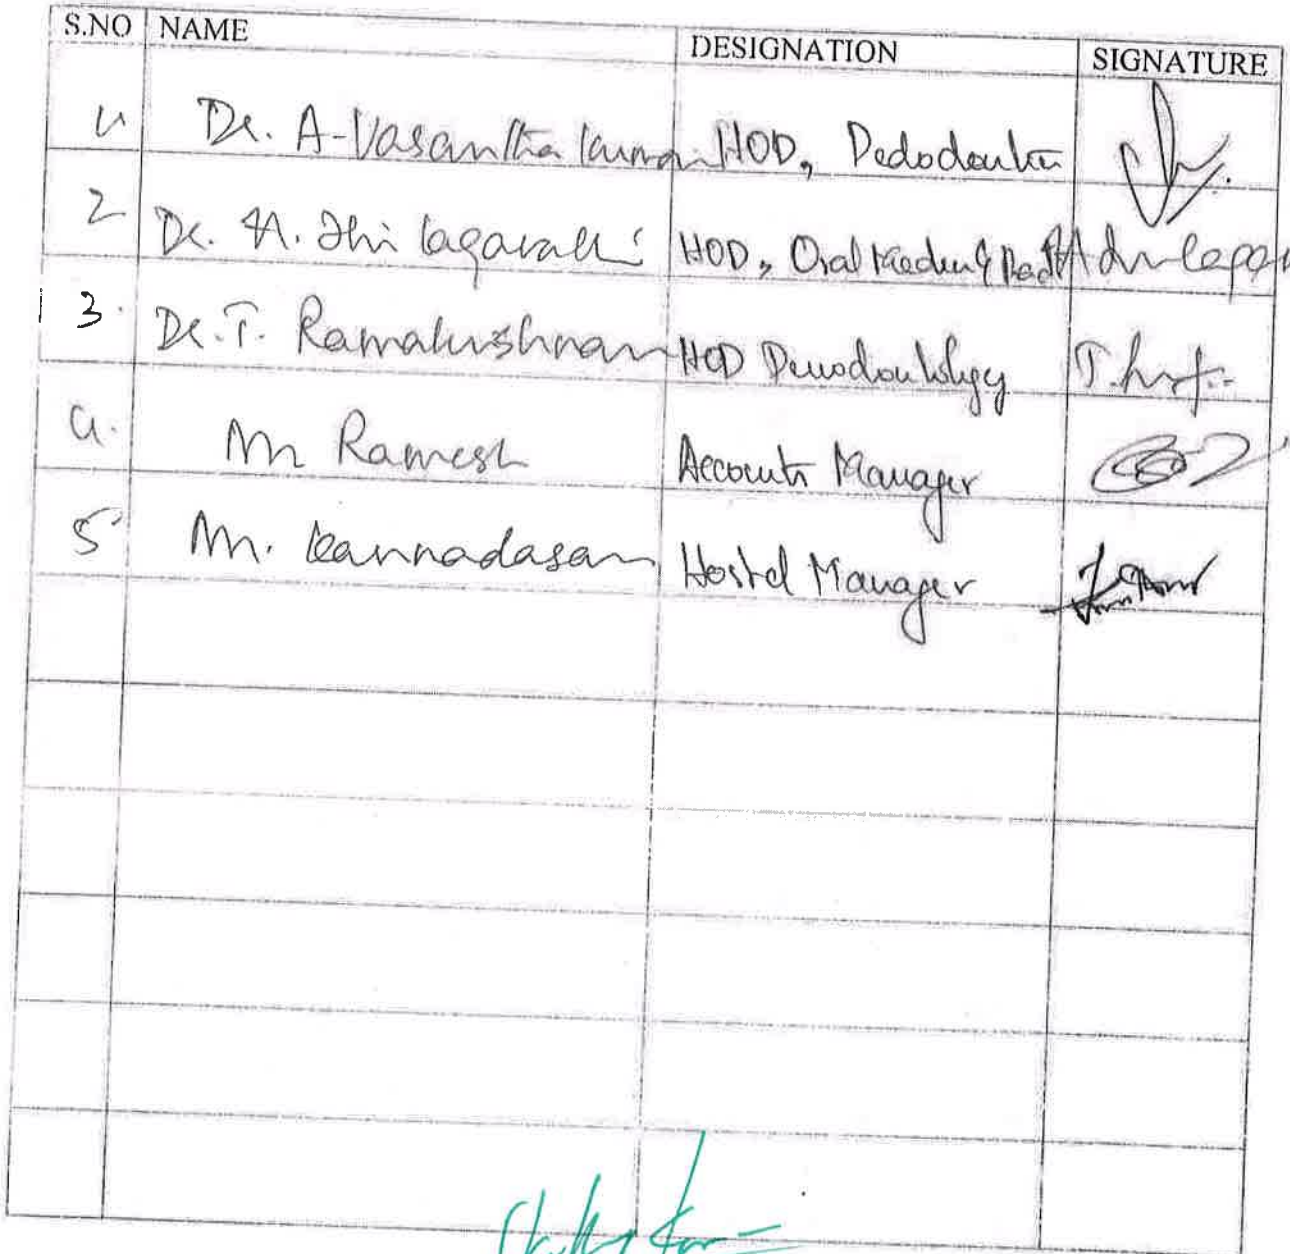 S.NO NAME DESIGNATION SIGNATURE
Dr. A. Vasantha Kumari HOD, Pedodontia
2 Dr. A. Thilagavathi HOD, Oral Medicine & Rad
3. Dr. T. Ramakrishnan HOD Periodontology
4. Mr Ramesh Accounts Manager
5 Mr. Kannadasan Hostel Manager